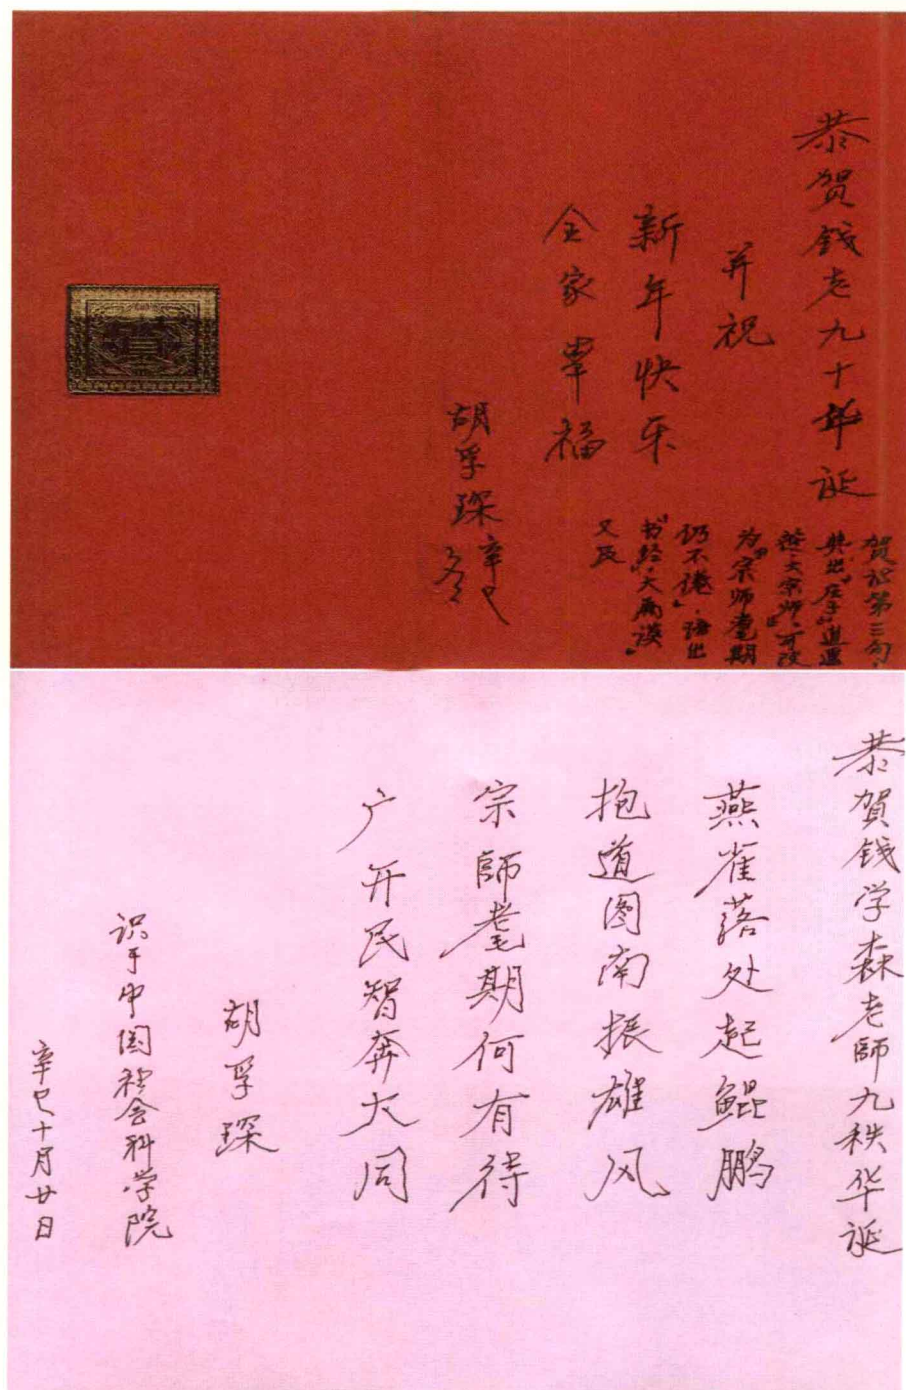 恭贺钱老九十华诞
并祝
新年快乐
全家幸福
胡孚琛 辛巳冬
贺词第三句，
典出《庄子》逍遥
游、大宗师。可改
为“宗师耄期
仍不倦”，语出
书经·大禹谟。
又及
恭賀钱学森老師九秩华诞
燕雀落处起鲲鹏
抱道图南振雄风
宗師耄期何有待
广开民智奔大同
胡孚琛
识于中国社会科学院
辛巳十月廿日